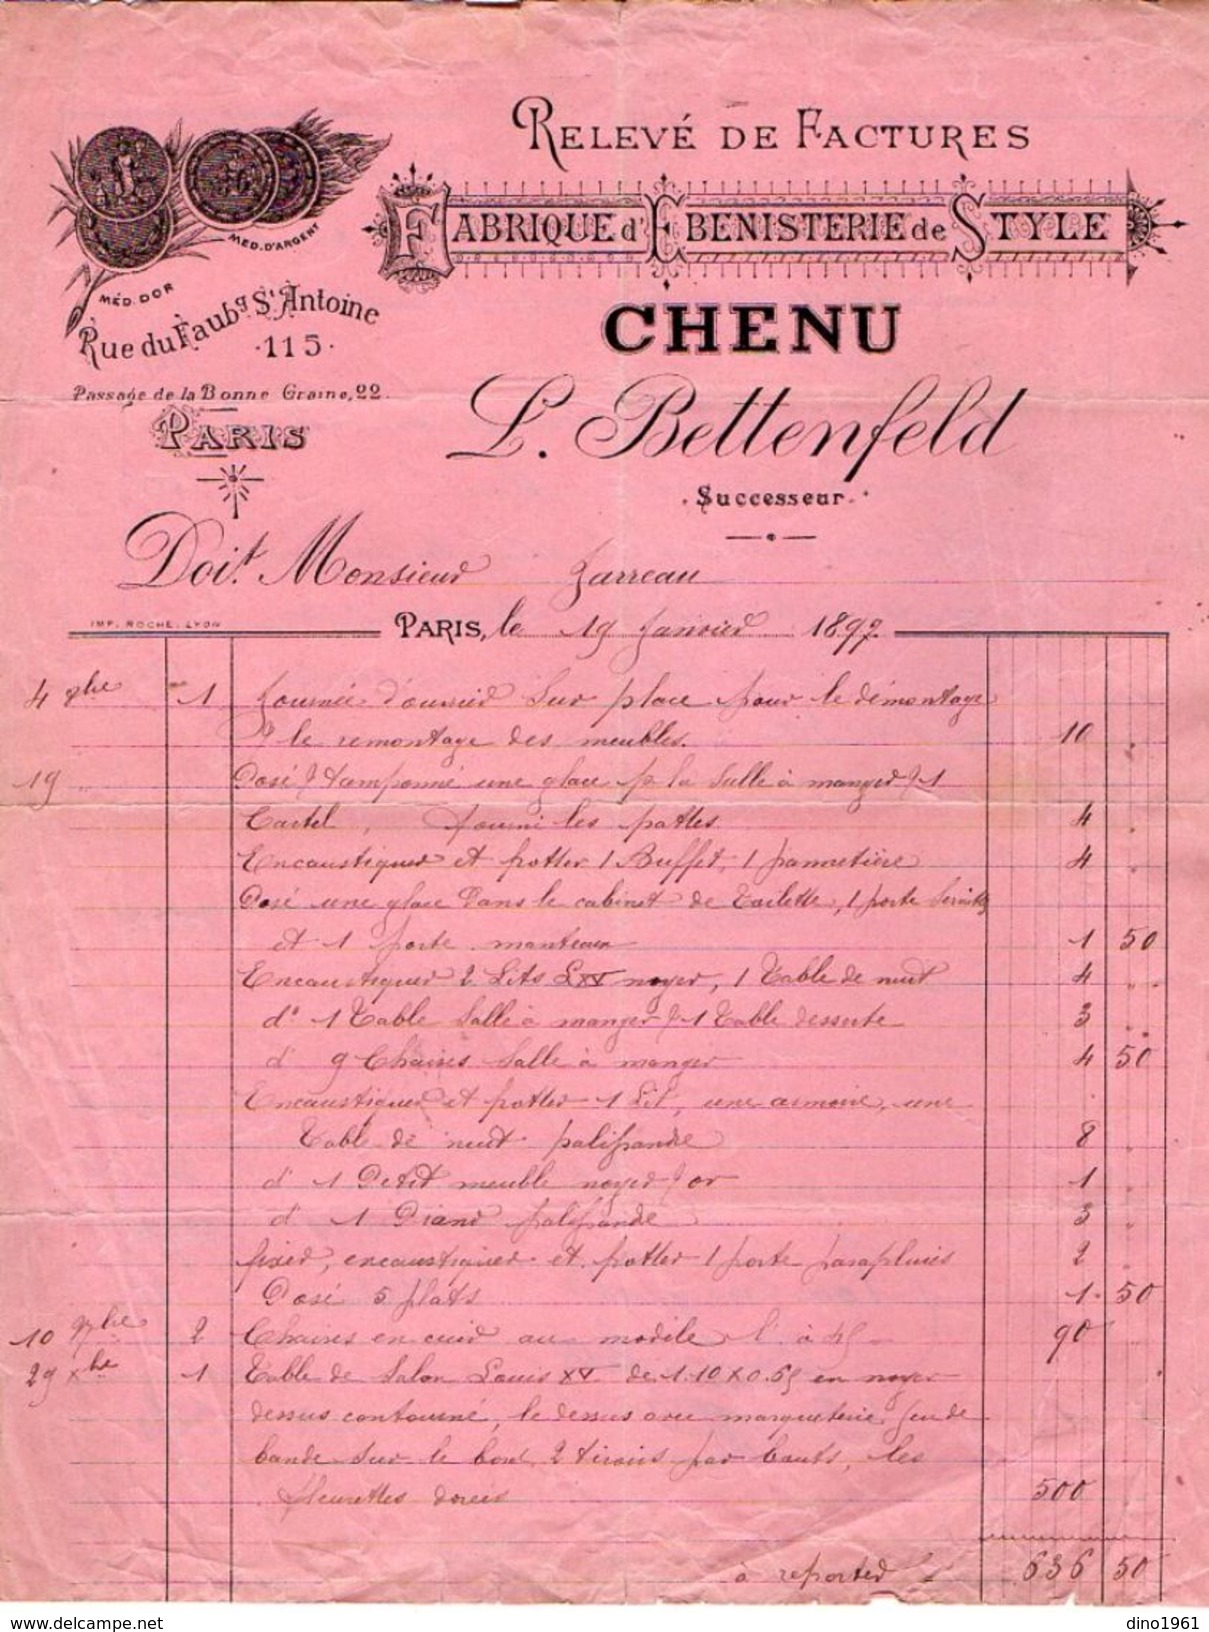 RELEVÉ DE FACTURES
FABRIQUE d'EBENISTERIE de STYLE
MÉD. D'OR
MED. D'ARGENT
Rue du Faubg St Antoine
·115·
Passage de la Bonne Graine, 22.
PARIS
CHENU
L. Bettenfeld
Successeur
Doit Monsieur Jarreau
IMP. ROCHE. LYON
PARIS, le 19 Janvier 1897
4 9bre 1 Journée d'ouvrier sur place pour le démontage
& le remontage des meubles. 10 "
19 " Posé & tamponné une glace p. la salle à manger & 1
Cartel, fourni les pattes 4 "
Encaustiquer et frotter 1 Buffet, 1 pannetière 4 "
Posé une glace dans le cabinet de Toilette, 1 porte serviettes
et 1 porte manteau 1 50
Encaustiquer 2 Lits LXV noyer, 1 Table de nuit 4 "
do 1 Table salle à manger & 1 Table desserte 3 "
do 9 Chaises salle à manger 4 50
Encaustiquer et frotter 1 Lit, une armoire, une
Table de nuit palissandre 8 "
do 1 Petit meuble noyer & or 1 "
do 1 Piano palissandre 3 "
fixer, encaustiquer et frotter 1 porte parapluies 2 "
Posé 5 plats 1 50
10 9bre 2 Chaises en cuir au modèle l' à 45 90 "
29 xbre 1 Table de Salon Louis XV de 1.10 x 0.65 en noyer
dessus contourné, le dessus avec marqueterie, jeu de
bande sur le bout, 2 tiroirs par bouts, les
fleurettes dorées 500
à reporter 636 50
www.delcampe.net
dino1961